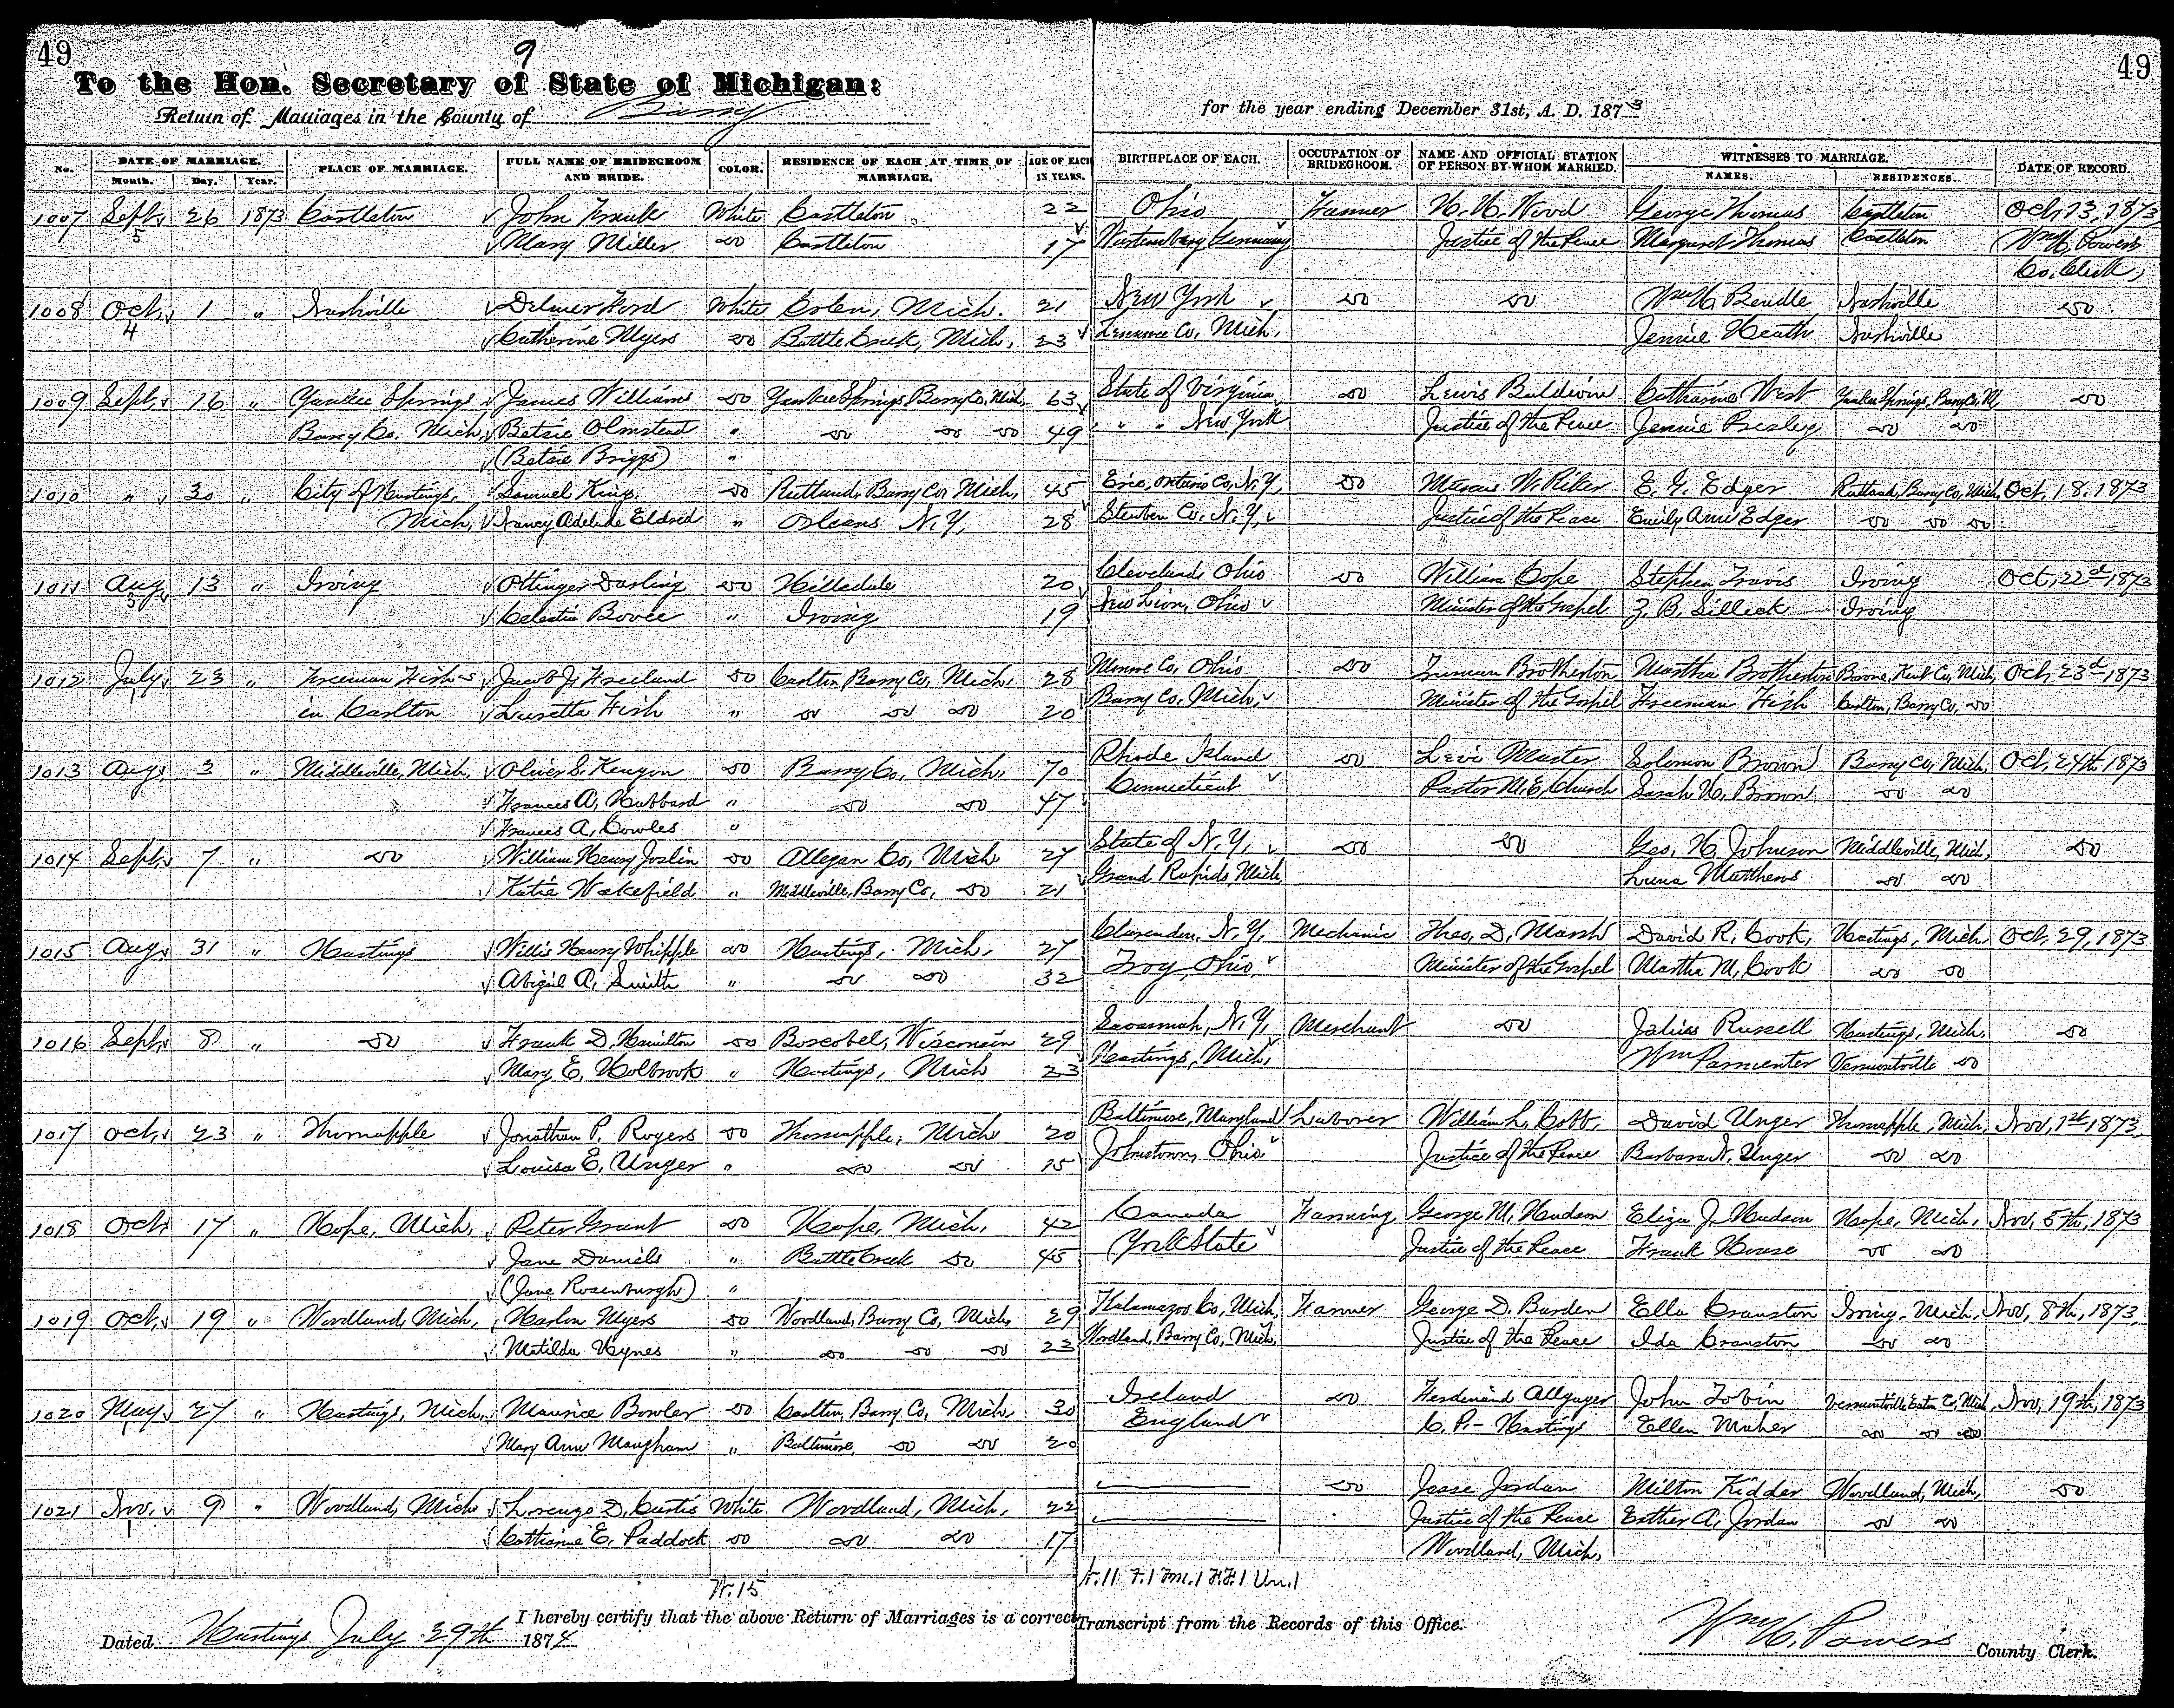 49 9 49
To the Hon. Secretary of State of Michigan:
Return of Marriages in the County of Barry for the year ending December 31st, A. D. 1873
No. DATE OF MARRIAGE. PLACE OF MARRIAGE. FULL NAME OF BRIDEGROOM AND BRIDE. COLOR. RESIDENCE OF EACH AT TIME OF MARRIAGE. AGE OF EACH IN YEARS. BIRTHPLACE OF EACH. OCCUPATION OF BRIDEGROOM. NAME AND OFFICIAL STATION OF PERSON BY WHOM MARRIED. WITNESSES TO MARRIAGE. DATE OF RECORD.
Month. Day. Year. NAMES. RESIDENCES.
1007 Sept. 26 1873 Castleton John Frank White Castleton 22 Ohio Farmer H. H. Wood George Thomas Castleton Oct, 13, 1873
5 Mary Miller do Castleton 17 Wurtemburg Germany Justice of the Peace Margaret Thomas Castleton Wm H. Powers
Co. Clerk,
1008 Oct. 1 " Nashville Delmer Ford White Mich. 21 New York do do Wm H. Beadle Nashville do
4 Catherine Myers do Battle Creek, Mich, 23 Lenawee Co, Mich, Jennie Heath Nashville
1009 Sept. 16 " Yankee Springs James Williams do Yankee Springs Barry Co, Mich, 63 State of Virginia do Lewis Baldwin Catharine West Yankee Springs, Barry Co, M, do
Barry Co. Mich, Betsie Olmstead " do do do 49 " " New York Justice of the Peace Jennie Presley do do
(Betsie Briggs) "
1010 " 30 " City of Hastings, Samuel King, do Rutland, Barry Co, Mich, 45 Erie, Ontario Co, N. Y, do Marcus W. Riker E. G. Edger Rutland, Barry Co, Mich, Oct, 18, 1873
Mich, Nancy Adelade Eldred " Orleans N. Y, 28 Steuben Co, N. Y, Justice of the Peace Emily Ann Edger do do do
1011 Aug 13 " Irving Ottinger Darling do Hillsdale 20 Cleveland, Ohio do William Cope Stephen Travis Irving Oct, 22d 1873
3 Celestia Bovee " Irving 19 Ohio Minister of the Gospel Z. B. Silleck Irving
1012 July 23 " Freeman Fish's Jacob J. Freeland do Carlton Barry Co, Mich, 28 Monroe Co, Ohio do Truman Brotherton Martha Brotherton Bowne, Kent Co, Mich, Oct, 23d 1873
1 in Carlton Lusetta Fish " do do do 20 Barry Co, Mich, Minister of the Gospel Freeman Fish Carlton, Barry Co, do
1013 Aug, 3 " Middleville, Mich, Oliver S. Kenyon do Barry Co, Mich, 70 Rhode Island do Levi Master Solomon Brown Barry Co, Mich, Oct, 24th 1873
Frances A, Hubbard " do do 47 Connecticut Pastor M. E. Church Sarah H, Brown do do
Frances A, Cowles "
1014 Sept, 7 " do William Henry Joslin do Allegan Co, Mich 27 State of N. Y, do do Geo, H, Johnson Middleville, Mich, do
Katie Wakefield " Middleville, Barry Co, do 21 Grand Rapids, Mich, Luna Matthews do do
1015 Aug, 31 " Hastings Willis Henry Whipple do Hastings, Mich, 27 Clarendon, N. Y, Mechanic Theo, D, Marsh David R, Cook, Hastings, Mich, Oct, 29, 1873
Abigail A, Smith " do do 32 Troy, Ohio, Minister of the Gospel Martha M, Cook do do
1016 Sept, 8 " do Frank D, Hamilton do Boscobel, Wisconsin 29 Savannah, N. Y, Merchant do Julius Russell Hastings, Mich, do
Mary E, Holbrook " Hastings, Mich 23 Hastings, Mich, Wm Parmenter Vermontville do
1017 Oct, 23 " Thornapple Jonathan P. Rogers do Thornapple, Mich 20 Baltimore, Maryland Laborer William L, Cobb, David Unger Thornapple, Mich, Nov, 1st 1873,
Louisa E, Unger " do do 15 Johnstown, Ohio, Justice of the Peace Barbara N, Unger do do
1018 Oct, 17 " Hope, Mich, Peter Grant do Hope, Mich, 42 Canada Farming George M, Hudson Eliza J. Hudson Hope, Mich, Nov, 5th, 1873
Jane Daniels " Battle Creek do 45 York State Justice of the Peace Frank House do do
(Jane Rosenburgh) "
1019 Oct, 19 " Woodland, Mich, Harlon Myers do Woodland, Barry Co, Mich, 29 Kalamazoo Co, Mich, Farmer George D. Barden Ella Cranston Irving, Mich, Nov, 8th, 1873,
Matilda Hynes " do do do 23 Woodland, Barry Co, Mich, Justice of the Peace Ida Cranston do do
1020 May 27 " Hastings, Mich, Maurice Bowler do Carlton, Barry Co, Mich, 30 Ireland do Ferdinand Allgayer John Tobin Vermontville Eaton Co, Mich, Nov, 19th, 1873
1 Mary Ann Maugham " Baltimore, do do 20 England C. P.- Hastings Ellen Maher do do do
1021 Nov, 9 " Woodland, Mich Lorenzo D, Curtis White Woodland, Mich, 22 do Jesse Jordan Milton Kidder Woodland, Mich, do
1 Catharine E, Paddock do do do 17 Justice of the Peace Esther A, Jordan do do
Woodland, Mich,
W. 15 N. 11 F. 1 Fm. 1 F.F. 1 Un. 1
I hereby certify that the above Return of Marriages is a correct Transcript from the Records of this Office.
Dated Hastings July 29th 1874 Wm H. Powers County Clerk.